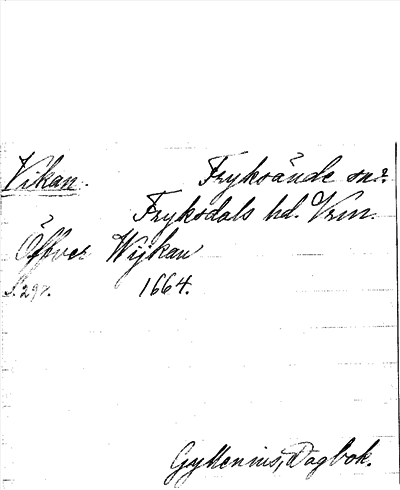 Vikan. Fryksände sn.
Fryksdals hd. Vrm.
Öffver Wijkan
S. 297. 1664.
Gyllenius, Dagbok.